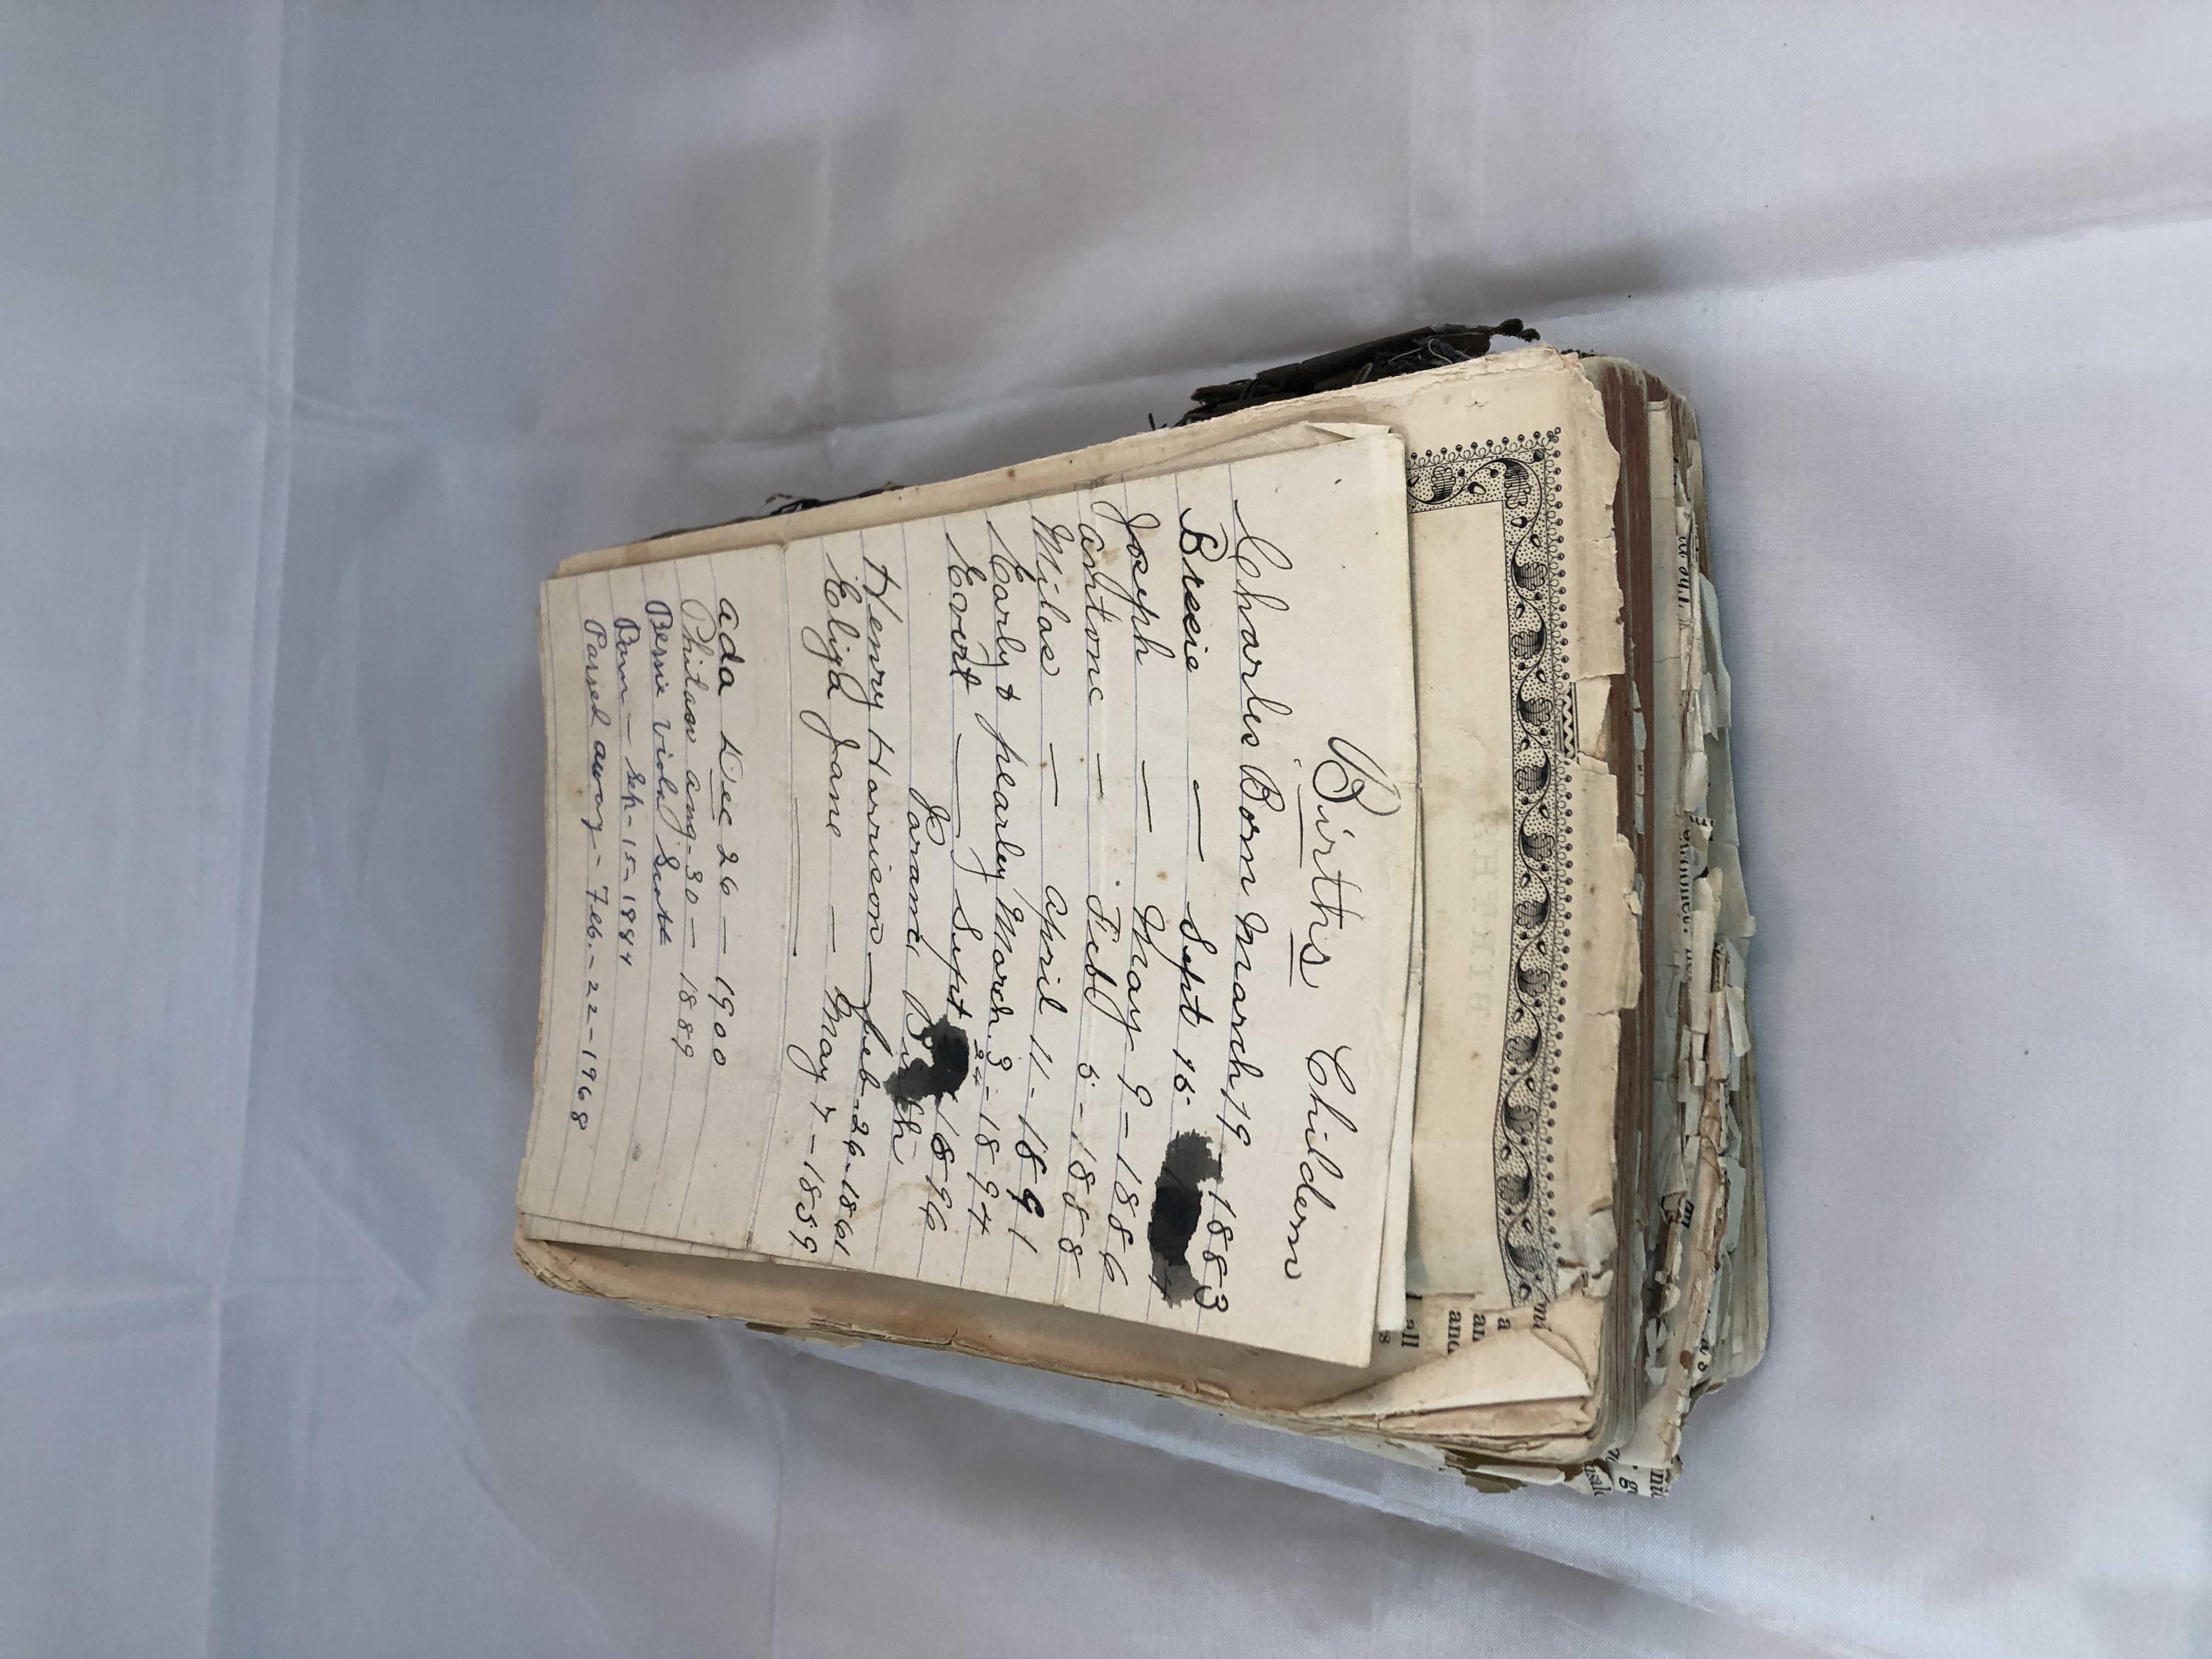 Births Childern
Charles Born march 19 - 1883
Breeie — Sept 15
Joseph — May 9 - 1886
antone — Feb 5 - 1888
Milas — April 11 - 1891
Early & pearly March 3 - 1894
24
Evert — Sept 1896
parants Birth
Henry Harrison — feb - 26 - 1861
Eliza Jane — May 7 - 1859
ada Dec 26 — 1900
aug - 30 — 1889
Bessie Viola Scott
Born — Sep - 15 - 1884
Passed away - Feb. - 22 - 1968
BIRTHS
a
and
all